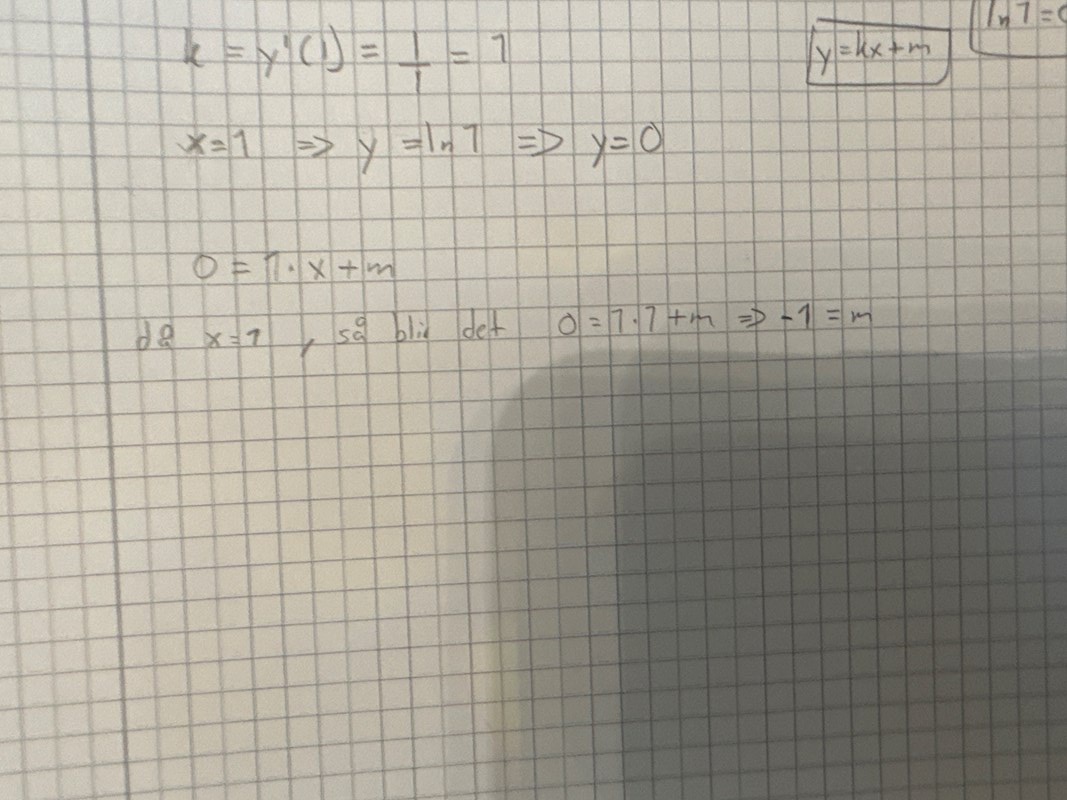 k = y'(1) = 1/1 = 1
y=kx+m
ln 1 = 0
x=1 => y =ln1 => y=0
0 = 1·x+m
då x=1, så blir det 0=1·1+m => -1=m